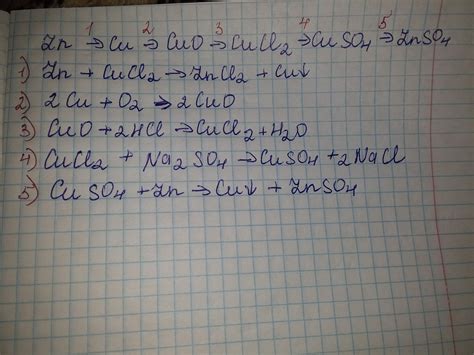 1 2 3 4 5
Zn → Cu → CuO → CuCl₂ → CuSO₄ → ZnSO₄
1) Zn + CuCl₂ → ZnCl₂ + Cu↓
2) 2Cu + O₂ → 2CuO
3) CuO + 2HCl → CuCl₂ + H₂O
4) CuCl₂ + Na₂SO₄ → CuSO₄ + 2NaCl
5) CuSO₄ + Zn → Cu↓ + ZnSO₄